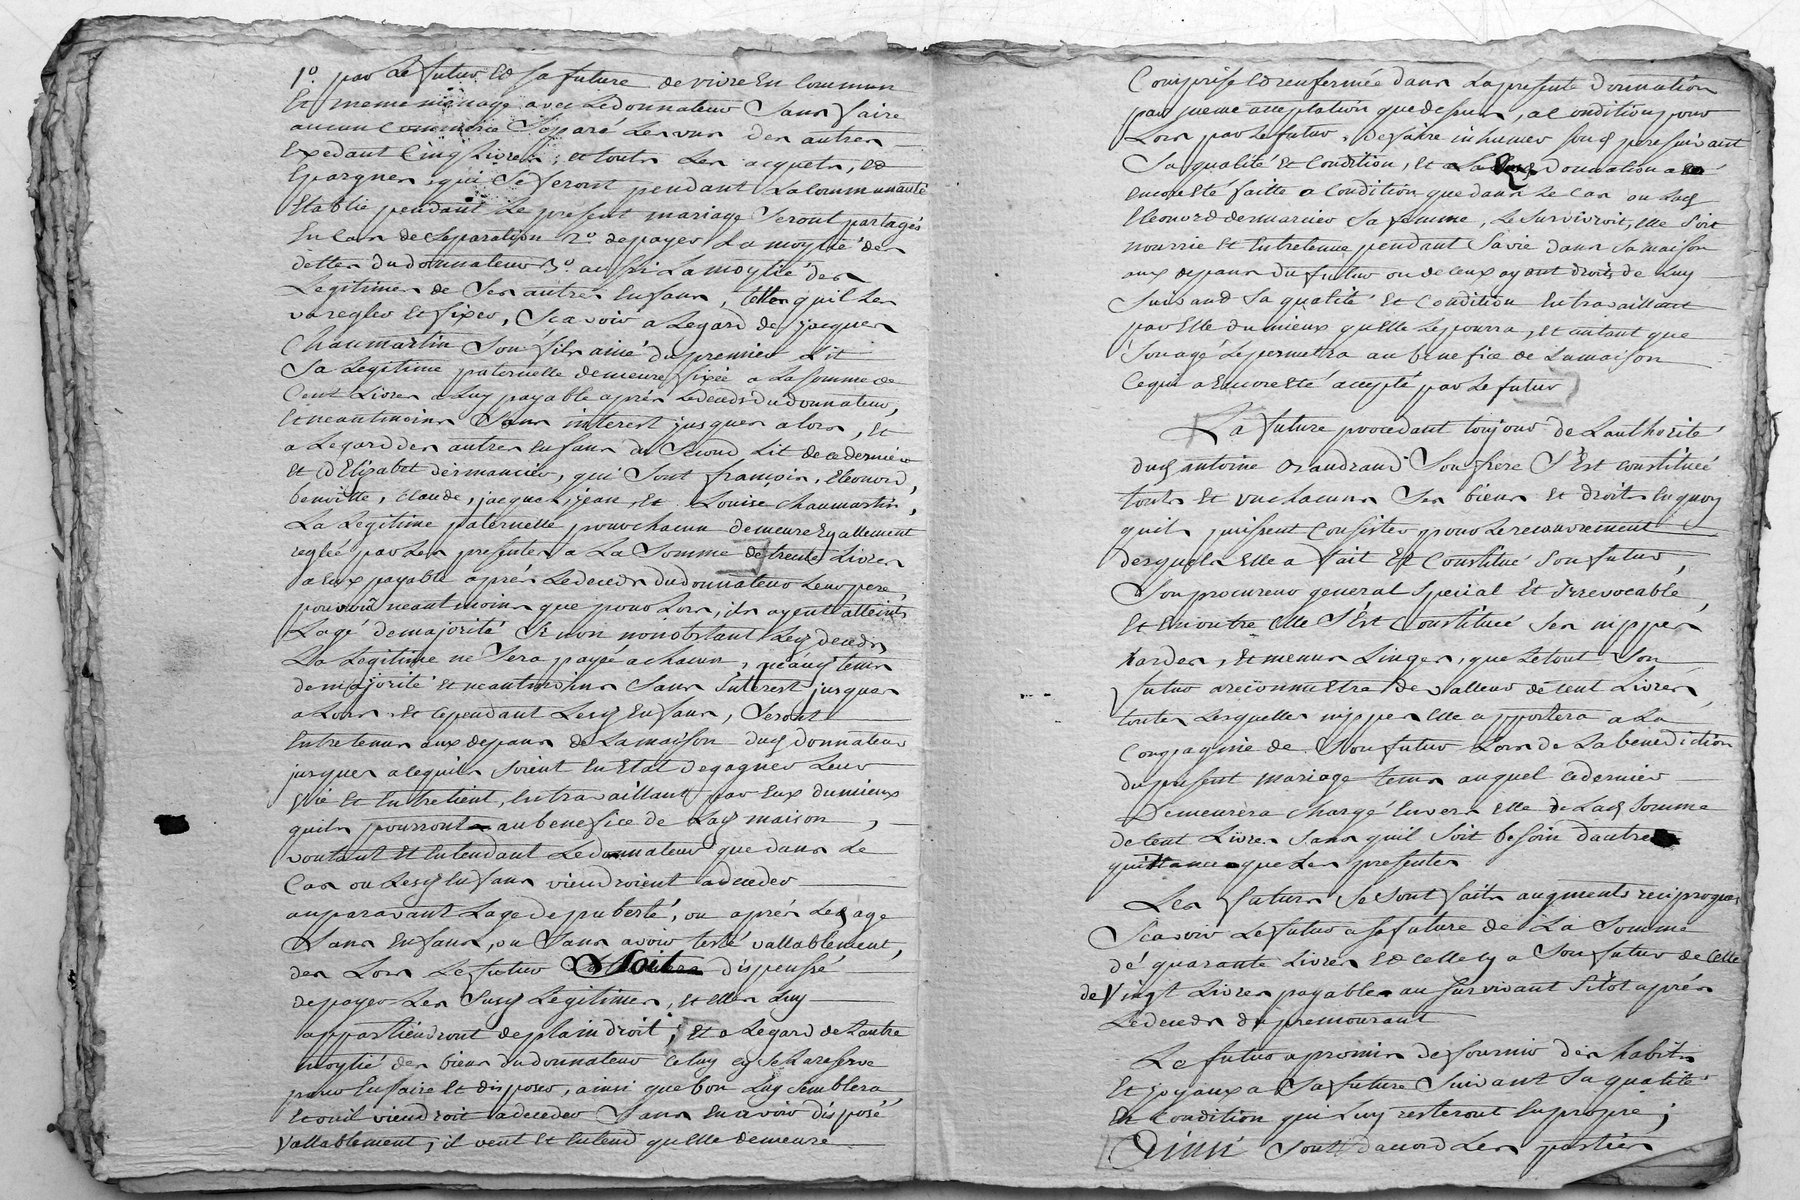 1º. par Le futur Ed sa future de vivre En Commun
Et meme menage avec Le donnateur Sans faire
aucun Commerce Separé Les uns des autres
Exedant Cinq Livres, et touts Les acquets, Ed
Epargnes, qui Se feront pendant La Communauté
Etablie pendant Le present mariage Seront partagés
En Cas de Separation 2º. de payer La moytié des
dettes du donnateur 3º. aussi La moytié des
Legitimes de Ses autres Enfans, telles quil Les
va regler Et fixer, Scavoir a Legard de jacques
Chaumartin Son fils ainé du premier Lit
Sa Legitime paternelle demeure fixée a La somme de
Cent Livres a Luy payable aprés Le deceds du donnateur,
Et neantmoins Sans interest jusques alors, Et
a Legard des autres Enfans du Second Lit de ce dernier
Et d'Elizabet dermancier, qui Sont françois, Eleonord,
benoitte, Claude, jacques, jean, Et Louise Chaumartin,
La Legitime paternelle pour chacun demeure Egallement
reglée par Les presentes a La Somme de trente Livres
a Eux payable aprés Le deceds du donnateur Leur pere,
pourvû neantmoins que pour Lors, ils ayent atteints
Lagé de majorité Si non nonobstant Led deceds
La Legitime ne Sera payée a chacun, quauq tems
de majorité Et neantmoins Sans interest jusques
a Lors Et Cependant Lesq Enfans, Seront
Entretenus aux depans de La maison dud donnateur
jusques a cequils Soient En Etat de gagner Leur
Vie Et Entretient, En travaillant par Eux du mieux
quils pourront au benefice de Lad maison,
voutant Et Entendant Le donnateur que dans Le
Cas ou Lesq Enfans viendroient a deceder
auparavant Lage de puberté, ou aprés Led age
Sans Enfans, ou Sans avoir testé vallablement,
des Lors Le futur Soit dispensé
de payer Les Susq Legitimes, Et Elles Luy
appartiendront de plain droit; Et a Legard de Lautre
moytié des biens du donnateur Celuy cy Se La reserve
pour En faire Et disposer, ainsi que bon Luy Semblera,
Et ou il viendroit a deceder Sans En avoir disposé
Vallablement, il veut Et Entend quElle demeure
Comprise Ed renfermée dans La presente donnation
par meme acceptation que dessus, a Condition pour
Lors par Le futur, de faire inhumer Sond pere Suivant
Sa qualité Et Condition, Et a La donnation a
encore Eté faitte a Condition que dans Le Cas ou Lad
Eleonord dermancier Sa femme, Le Survivroit, Elle Soit
nourrie Et Entretenue pendant Sa vie dans Sa maison
aux depans du futur ou de Ceux ayant droits de Luy
Suivand Sa qualité Et Condition En travaillant
par Elle du mieux quElle Le pourra, Et autant que
Son agé Le permettra au benefice de La maison
Ce qui a Encore Eté accepté par Le futur
La future procedant toujour de Lauthorité
dud antoine Son frere S'Est Constituée
touts Et vn chacuns Ses biens Et droits En quoy
quils puissent Consister pour Le recouvrement
desquels Elle a fait Et Constitué Son futur,
Son procureur general Special Et Irrevocable
Et En outre Elle S'Est Constituée Ses nippes
hardes, Et menus Linges, que Le tout Son
futur a reconnu Etre de valleur de Cent Livres,
toutes Lesquelles nippes Elle apportera a La
Compagnie de Son futur Lors de La benediction
du present mariage tems auquel Ce dernier
Demeurera chargé Envers Elle de Lad Somme
de Cent Livres Sans quil Soit besoin dautre
quittance que Les presentes
Les futurs Se Sont faits augments reciproques
Scavoir Le futur a Sa future de La Somme
dé quarante Livres Ed Celle Cy a Son futur de Celle
de Vingt Livres payables au Survivant Sitôt aprés
Le deceds du premourant
Le futur a promis de fournir des habits
Et joyaux a Sa future Suivant Sa qualité
Et Condition qui Luy resteront En propre;
Ainsi Sont d'accord Les parties